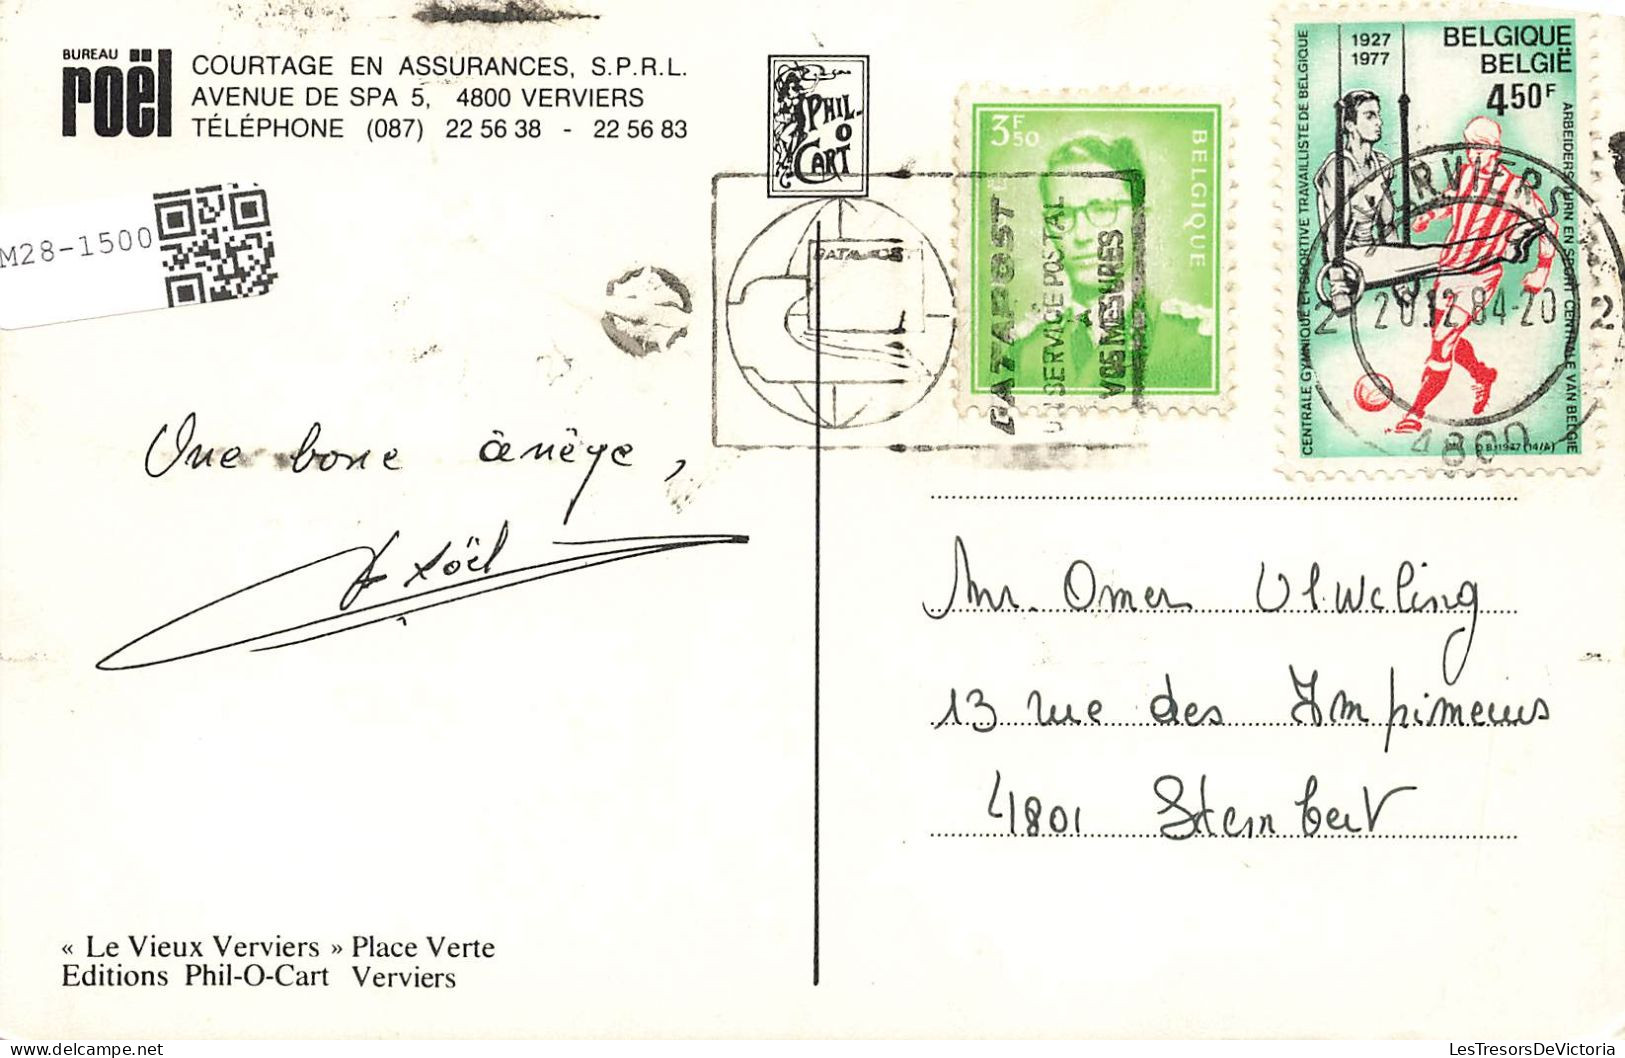 BUREAU
roël
COURTAGE EN ASSURANCES, S.P.R.L.
AVENUE DE SPA 5, 4800 VERVIERS
TÉLÉPHONE (087) 22 56 38 - 22 56 83
M28-1500
PHIL-
O
CART
3F50
BELGIQUE
DATAPOST
UN SERVICE POSTAL
À VOS MESURES
1927
1977
BELGIQUE
BELGIË
450F
CENTRALE GYMNIQUE ET SPORTIVE TRAVAILLISTE DE BELGIQUE
ARBEIDERSTURN EN SPORT CENTRALE VAN BELGIE
VERVIERS
2 20.12.84-20 2
4800
Une bone
roël
Mr. Omer
13 rue des Impimeurs
4801 Stembert
« Le Vieux Verviers » Place Verte
Editions Phil-O-Cart Verviers
LesTresorsDeVictoria